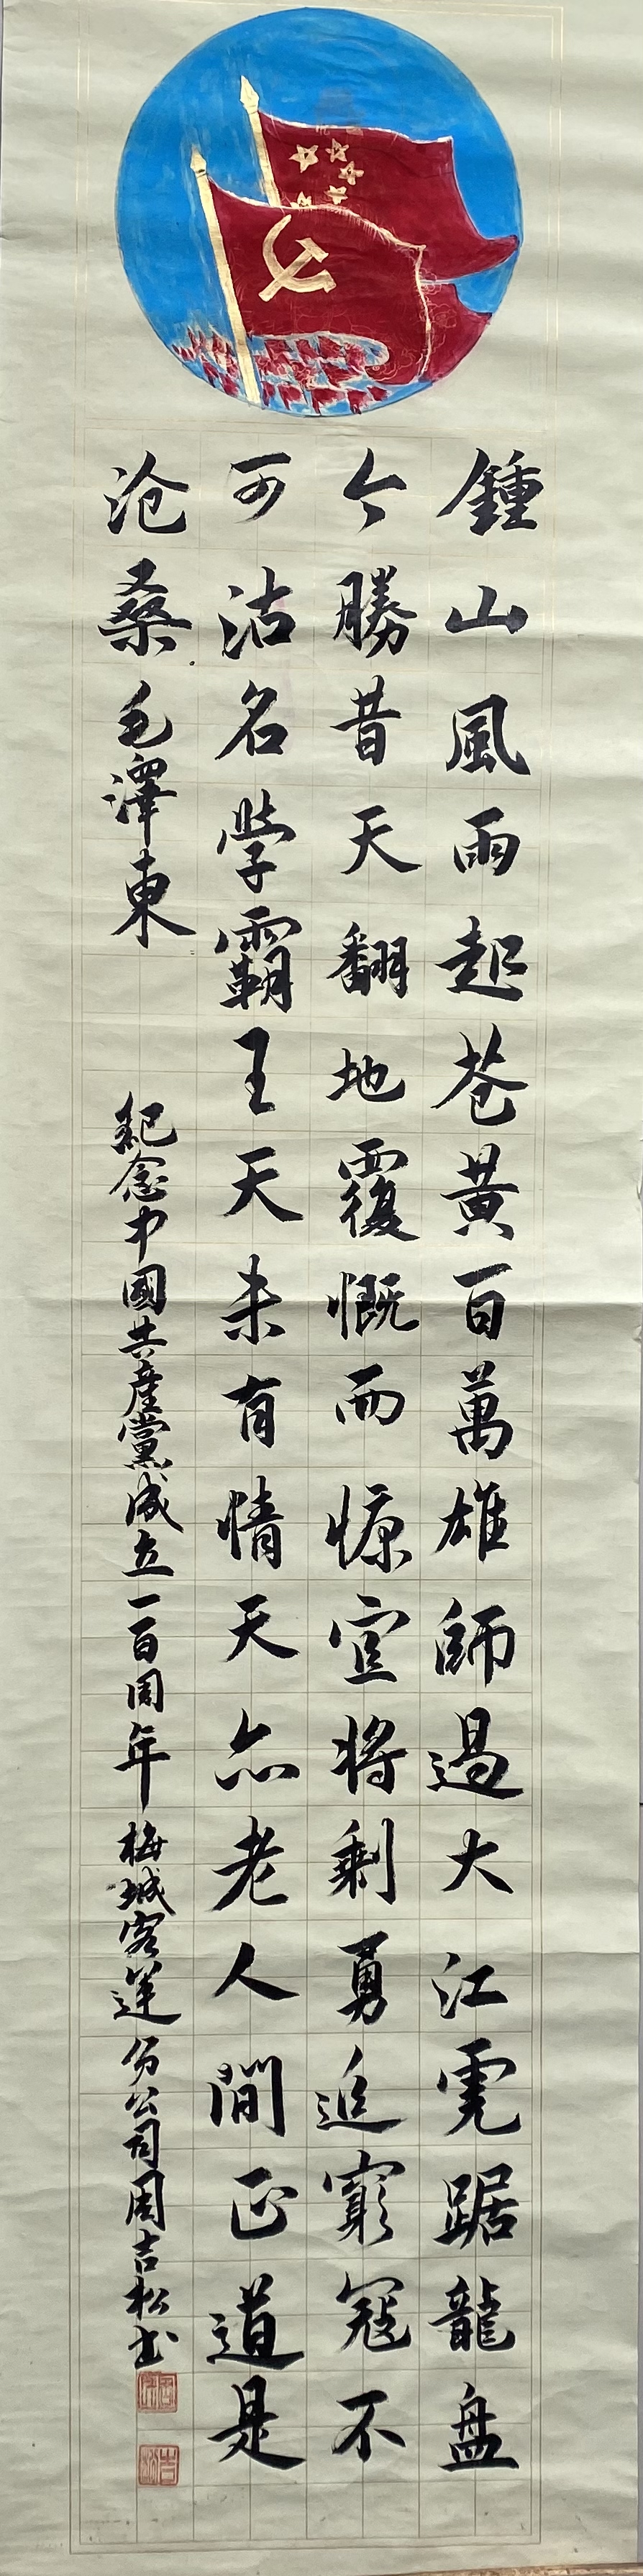 鍾山風雨起苍黄百萬雄師過大江虎踞龍盤
今勝昔天翻地覆慨而慷宜将剩勇追窮寇不
可沽名學霸王天未有情天亦老人間正道是
沧桑毛澤東 紀念中國共產黨成立一百周年 梅城客運分公司周吉松书